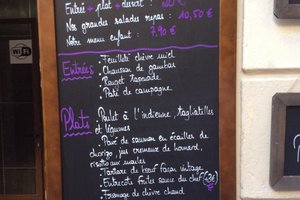 Entrée + plat + dessert :
Nos grandes salades repas : 10,50 €
Notre menu enfant : 7,90 €
Entrées
- Feuilleté chèvre miel
- Chausson de gambas
- Rouget tapenade
- Paté de campagne
Plats
- Poulet à l'indienne, tagliatelles
et légumes
- Pavé de saumon en écailles de
chorizo, jus crémeux de homard,
risotto aux moules
- Tartare de bœuf façon vintage
- Entrecôte frites sauce du chef
- Fromage de chèvre chaud
WiFi